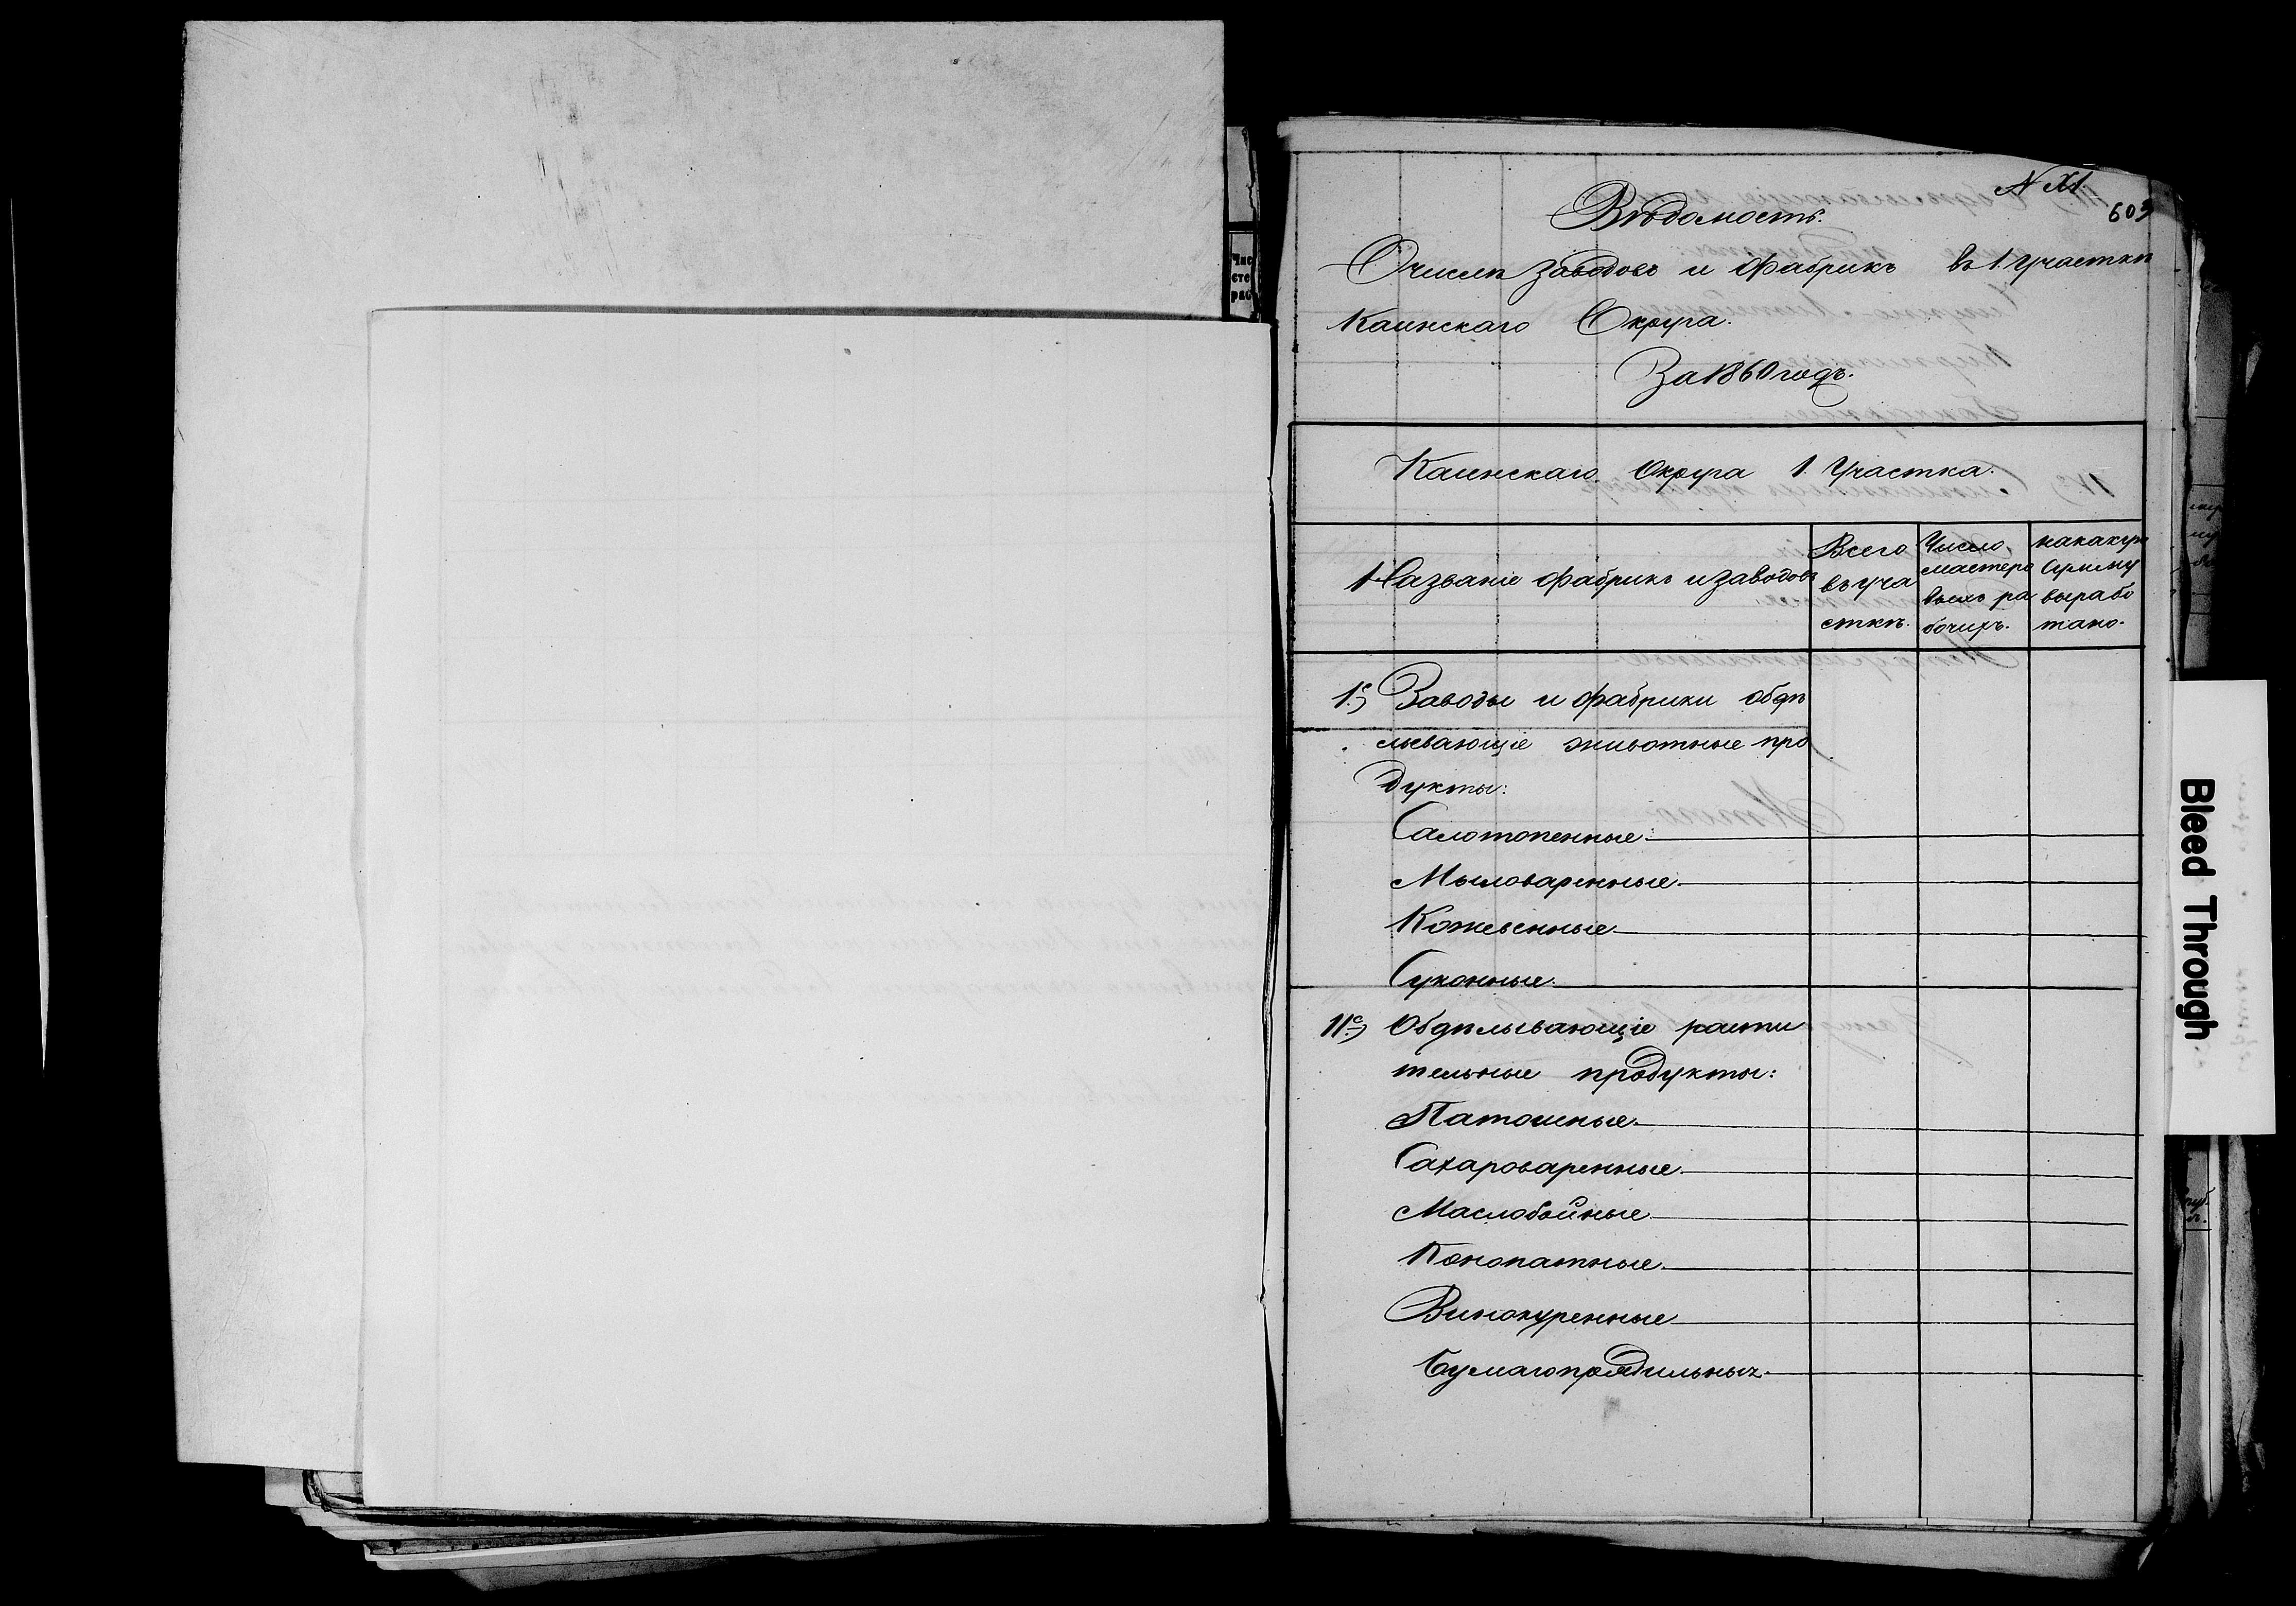 N XI.
603
Вѣдомость.
О числѣ заводовъ и фабрикъ въ 1. участкѣ
Каинскаго Округа.
За 1860 годъ.
Каинскаго Округа 1. Участка.
Названіе фабрикъ и заводовъ
Всего
въ уча
сткѣ.
Число
мастеро
выхъ ра
бочихъ.
на какую
сумму
вырабо
тано.
1е) Заводы и фабрики обдѣ
лывающіе животные про
дукты:
Салотопенные.
Мыловаренные.
Кожевенные.
Суконные.
11е) Обдѣлывающіе расти
тельные продукты:
Паточные.
Сахароваренные.
Маслобойные.
Конопатные.
Винокуренные
Бумагопрядильныхъ.
Bleed Through
Чис
сте
раб